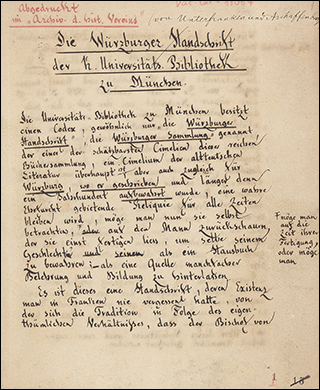 Abgedruckt
im "Archiv d. hist. Vereins
(von Unterfranken und Aschaffenburg
Die Würzburger Handschrift
der K. Universitäts-Bibliothek
zu München.
Die Universitäts-Bibliothek zu München, besitzt
einen Codex, gewöhnlich nur die Würzburger
Handschrift, die Würzburger Sammlung genannt,
der einer der schätzbarsten Cimelien dieser reichen
Büchersammlung, ein Cimelium der altdeutschen
Literatur überhaupt, aber auch zugleich für
Würzburg, wo er geschrieben und länger denn
ein Jahrhundert aufbewahrt wurde, eine wahre
Ehrfurcht gebietende Reliquie für alle Zeiten
bleiben wird, möge man nun sie selbst
betrachten, auf den Mann zurückschauen,
der sie einst fertigen liess, um selbe seinem
Geschlechte und seinem als ein Hausbuch
zu bewahren und als eine Quelle mannichfacher
Belehrung und Bildung zu hinterlassen.
Es ist dieses eine Handschrift, deren Existenz
man in Franken nie vergessen hatte, von
der sich die Tradition in Folge des eigen-
thümlichen Verhältnisses, dass der Bischof von
möge man
auf die
Zeit ihrer
Fertigung,
oder möge
man